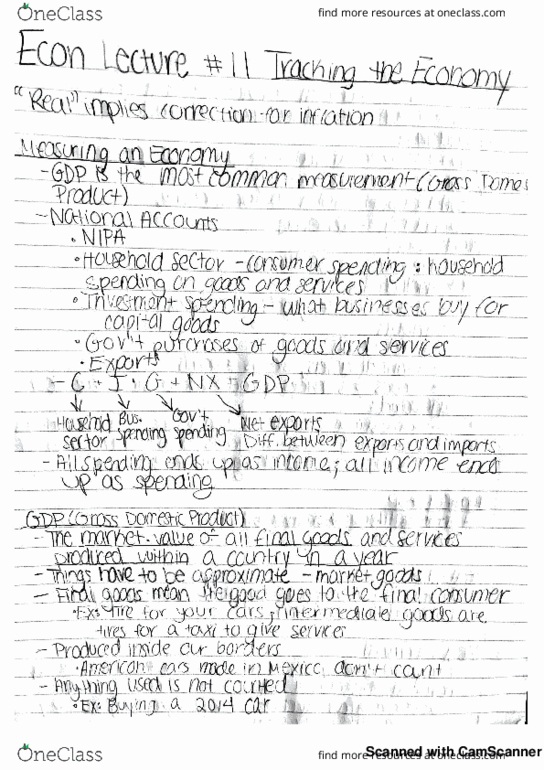 OneClass
find more resources at oneclass.com
Econ Lecture #11 Tracking the Economy
"Real" implies correction for inflation
Measuring an Economy
- GDP is the most common measurement (Gross Domes
Product)
- National Accounts
• NIPA
• Household sector - consumer spending : household
spending on goods and services
• Investment spending - what businesses buy for
capital goods
• Gov't purchases of goods and services
• Exports
- C + I + G + NX = GDP
Household Bus. Gov't Net exports
sector spending spending Diff. between exports and imports
- All spending ends up as income; all income ends
up as spending
GDP (Gross Domestic Product)
- The market value of all final goods and services
produced within a country in a year
- Things have to be approximate - market goods
- Final goods mean the good goes to the final consumer
• Ex: tire for your cars, intermediate goods are
tires for a taxi to give services
- Produced inside our borders
• American cars made in Mexico don't count
- Anything used is not counted
• Ex: Buying a 2014 car
OneClass
find more resources at oneclass.com
Scanned with CamScanner